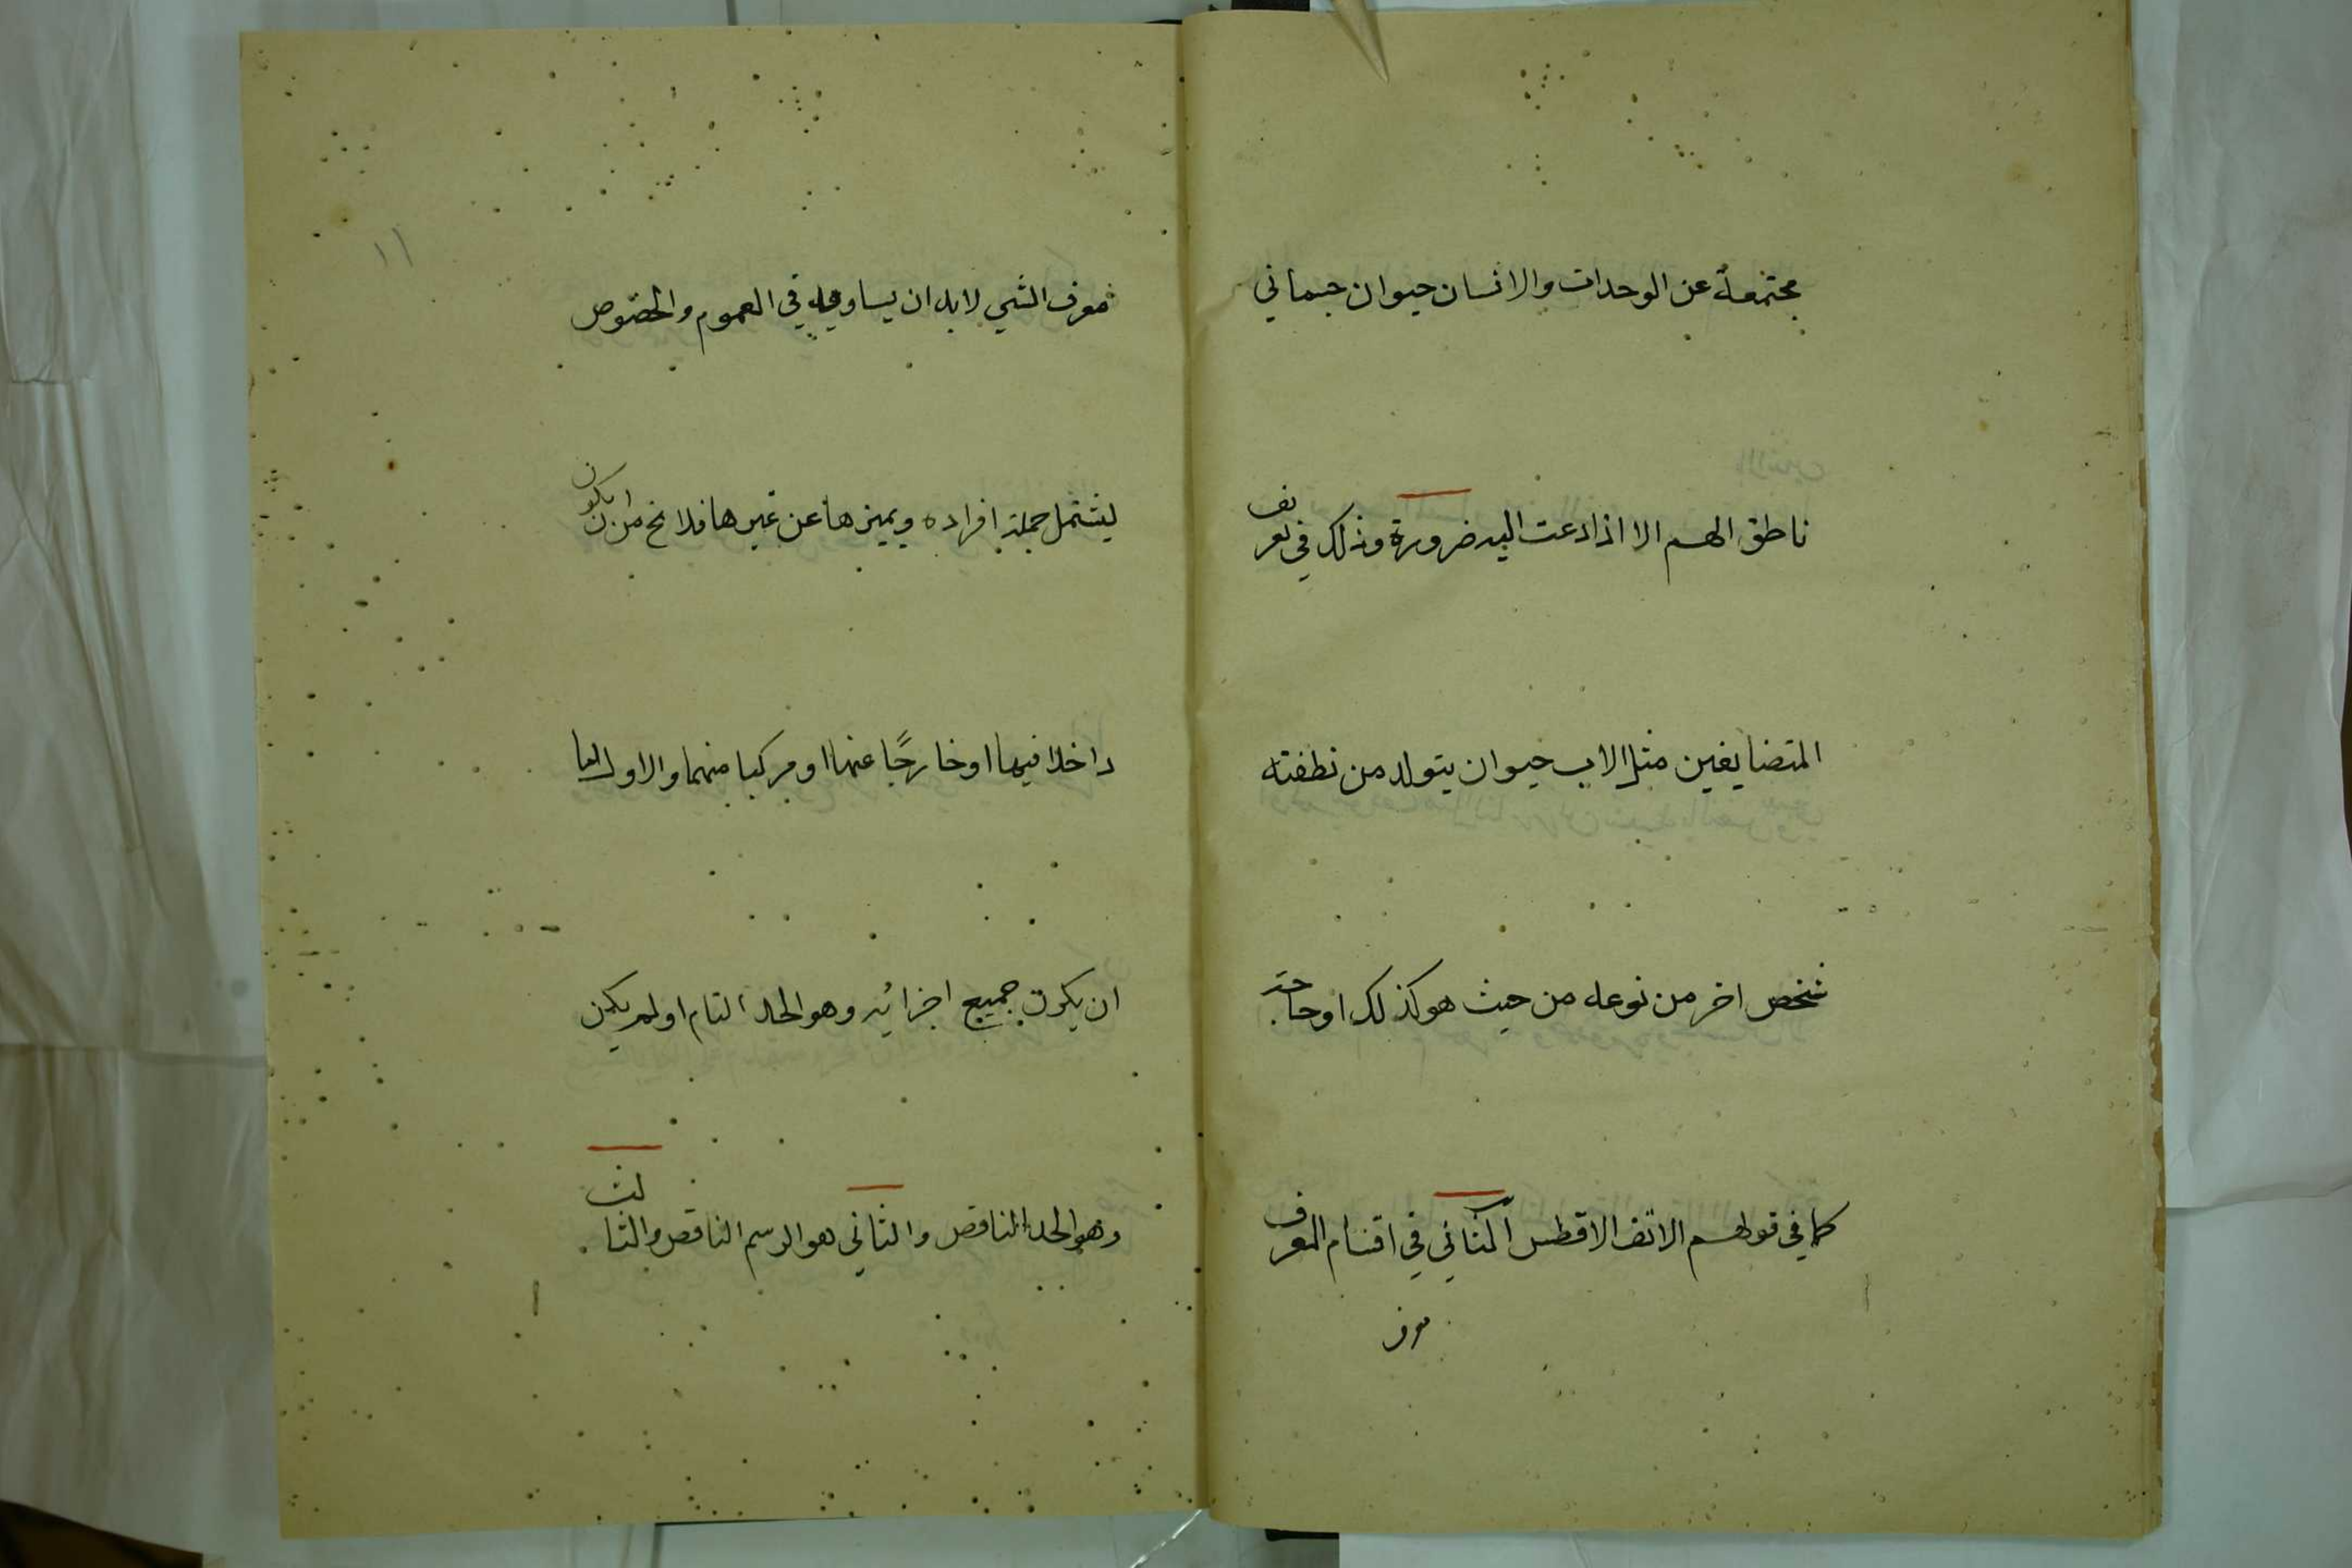 مجتمعة عن الوحدات والانسان حيوان جسماني
ناطق الهم الا اذا دعت اليه ضرورة وذلك في تعريف
المتضايفين مثل الاب حيوان يتولد من نطفته
شخص اخر من نوعه من حيث هو كذلك او حاجة
كما في قولهم الانف الافطس الثاني في اقسام المعرف
معرف
١١
معرف الشي لا بد ان يساويه في العموم والخصوص
ليشتمل جملة افراده ويميزها عن غيرها فلا يخ من ان يكون
داخلا فيها او خارجًا عنها او مركبا منهما والاول اما
ان يكون جميع اجزائه وهو الحد التام او لم يكن
وهو الحد الناقص والثاني هو الرسم الناقص والثالث